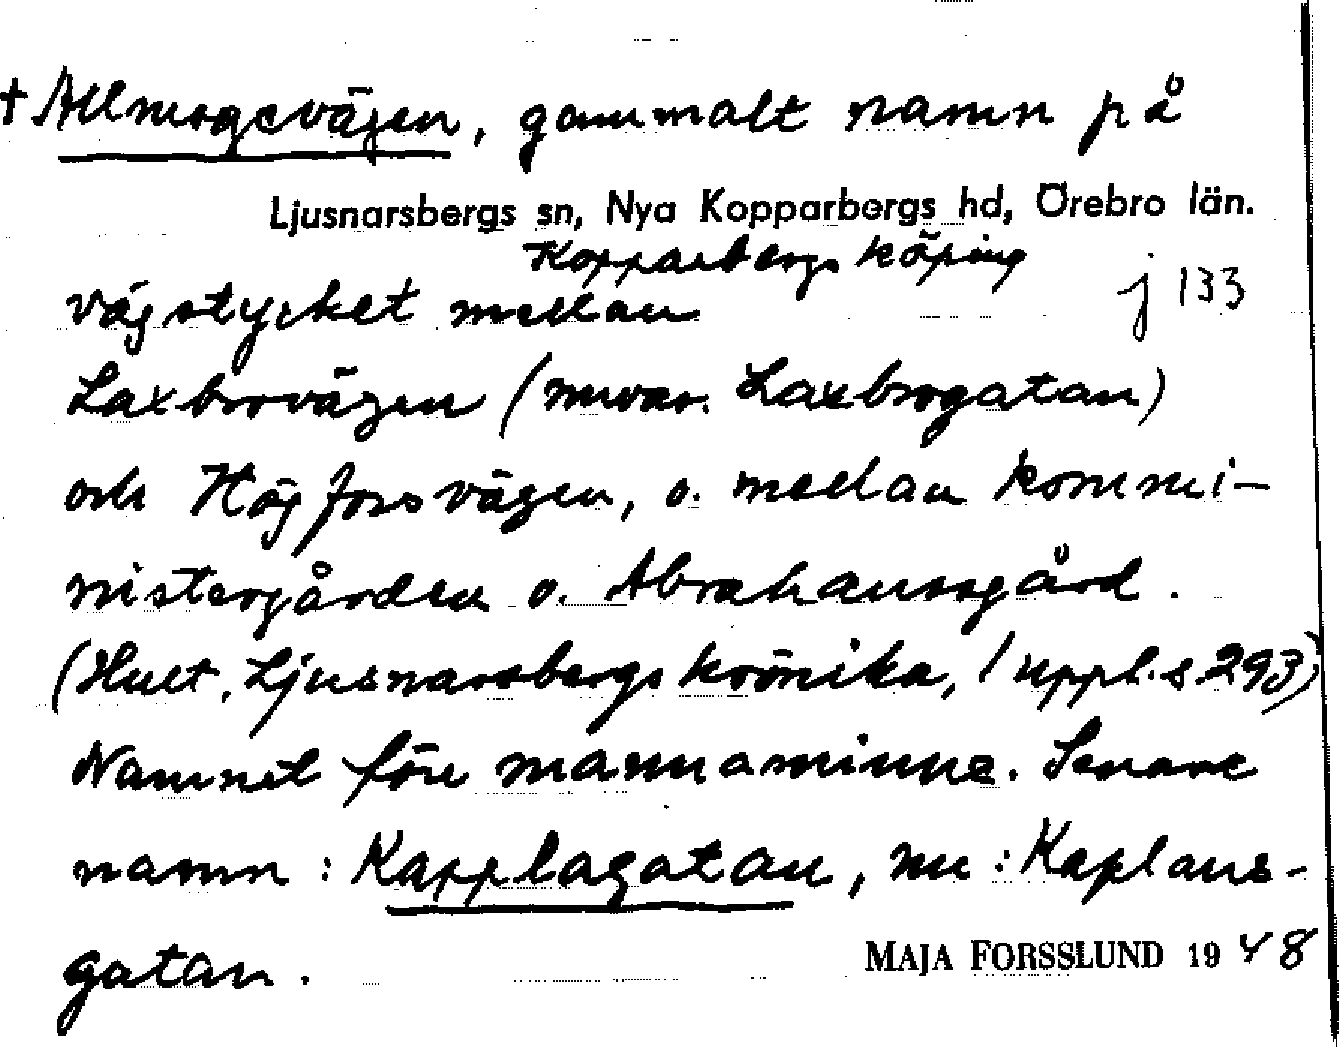 † Allmogevägen, gammalt namn på
Ljusnarsbergs sn, Nya Kopparbergs hd, Örebro län.
Kopparbergs köping
vägstycket mellan
j 133
Laxbrovägen (nuvar. Laxbrogatan)
och Högforsvägen, o. mellan kommi-
nistergården o. Abrahamsgård.
(Hult, Ljusnarsbergs krönika, 1 uppl. s 293)
Namnet före mannaminne. Senare
namn: Kapplagatan, nu: Kaplans-
gatan.
MAJA FORSSLUND 1948